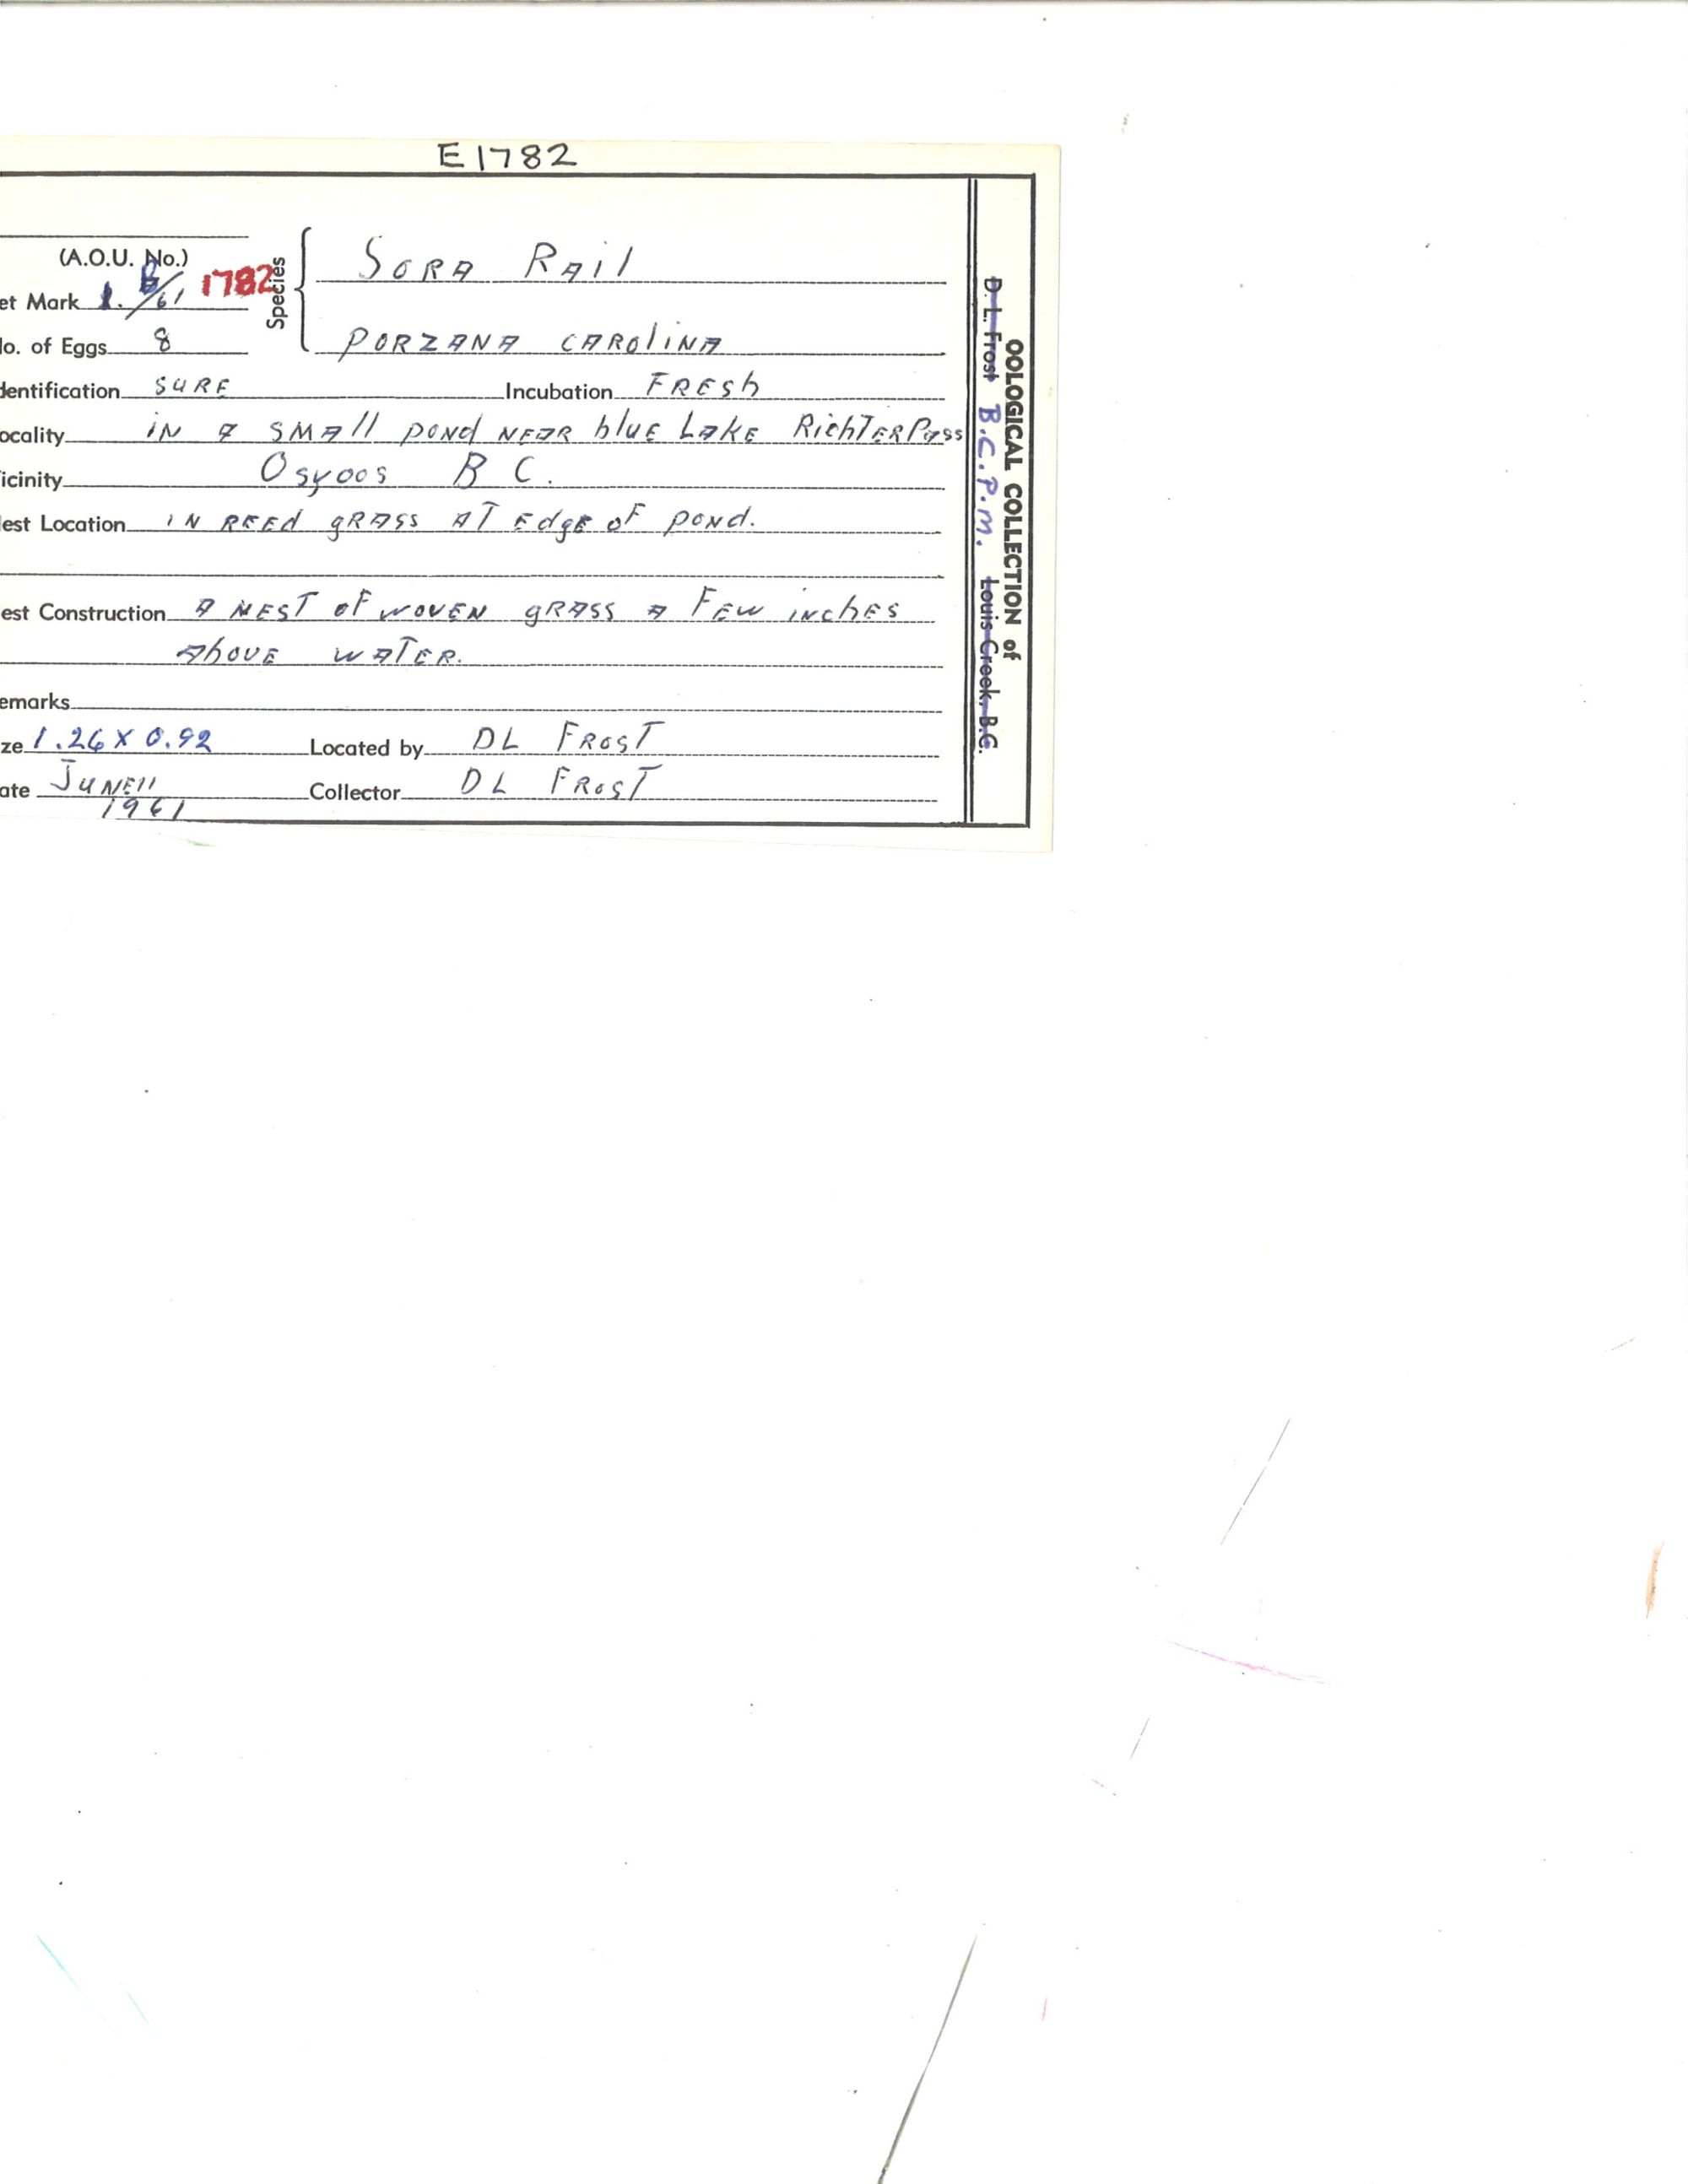 E1782
(A.O.U. No.)
et Mark 1. 8/61 1782
Species
Sora Rail
lo. of Eggs 8
PORZANA CAROLINA
dentification SURE Incubation FRESh
ocality iN a SMAll pONd NEAR bluE LAKE RichTERPass
icinity Osyoos B C.
lest Location iN REEd gRASS AT EdgE oF pONd.
est Construction A NEST oF WOVEN gRASS A FEW iNchES
AbOVE WATER.
emarks
ze 1.26 X 0.92 Located by DL FROST
ate JUNE 11 Collector DL FROST
1961
OOLOGICAL COLLECTION of
D. L. Frost B.C.P.M. Louis Creek, B.C.